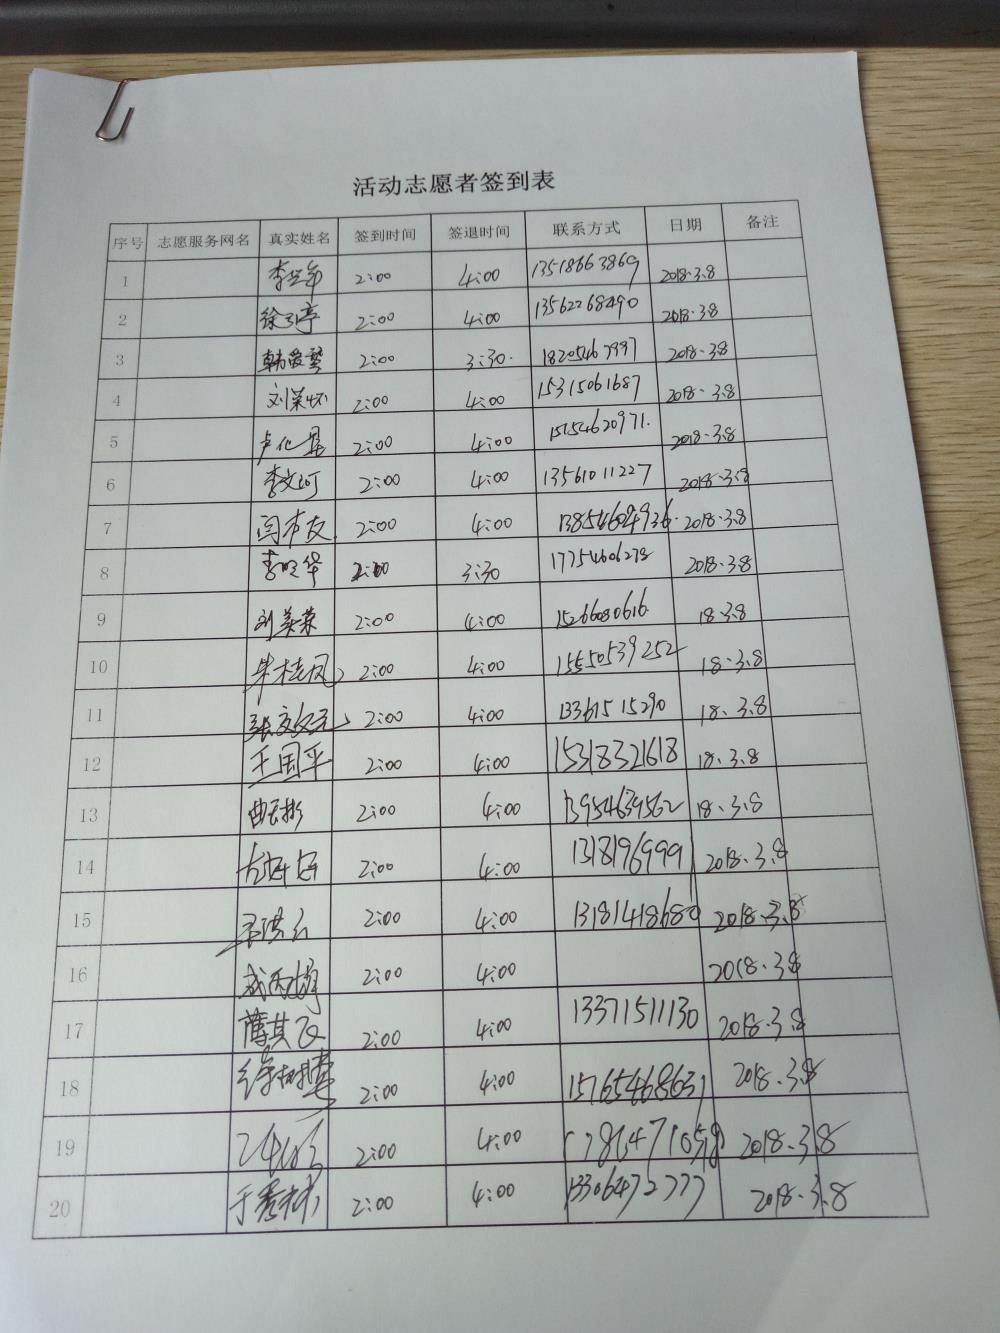 活动志愿者签到表
序号 志愿服务网名 真实姓名 签到时间 签退时间 联系方式 日期 备注
1 2:00 4:00 13518663869 2018.3.8
2 2:00 4:00 13562268490 2018.3.8
3 韩爱琴 2:00 3:30. 18205467997 2018.3.8
4 刘荣怀 2:00 4:00 15315061687 2018.3.8
5 2:00 4:00 15154620971. 2018.3.8
6 李文河 2:00 4:00 13561011227 2018.3.8
7 闫市友 2:00 4:00 13854604936. 2018.3.8
8 李明华 2:00 3:30 17754606278 2018.3.8
9 刘美荣 2:00 4:00 1526680616 18.3.8
10 朱桂凤 2:00 4:00 15550539252 18.3.8
11 2:00 4:00 13361515290 18.3.8
12 王国平 2:00 4:00 15318321618 18.3.8
13 曲玉彬 2:00 4:00 13954639562 18.3.8
14 2:00 4:00 1318196999 2018.3.8
15 王洪云 2:00 4:00 13181418680 2018.3.8
16 2:00 4:00 2018.3.8
17 薄其飞 2:00 4:00 13371511130 2018.3.8
18 2:00 4:00 15765468631 2018.3.8
19 2:00 4:00 2018.3.8
20 于秀林 2:00 4:00 13306472777 2018.3.8